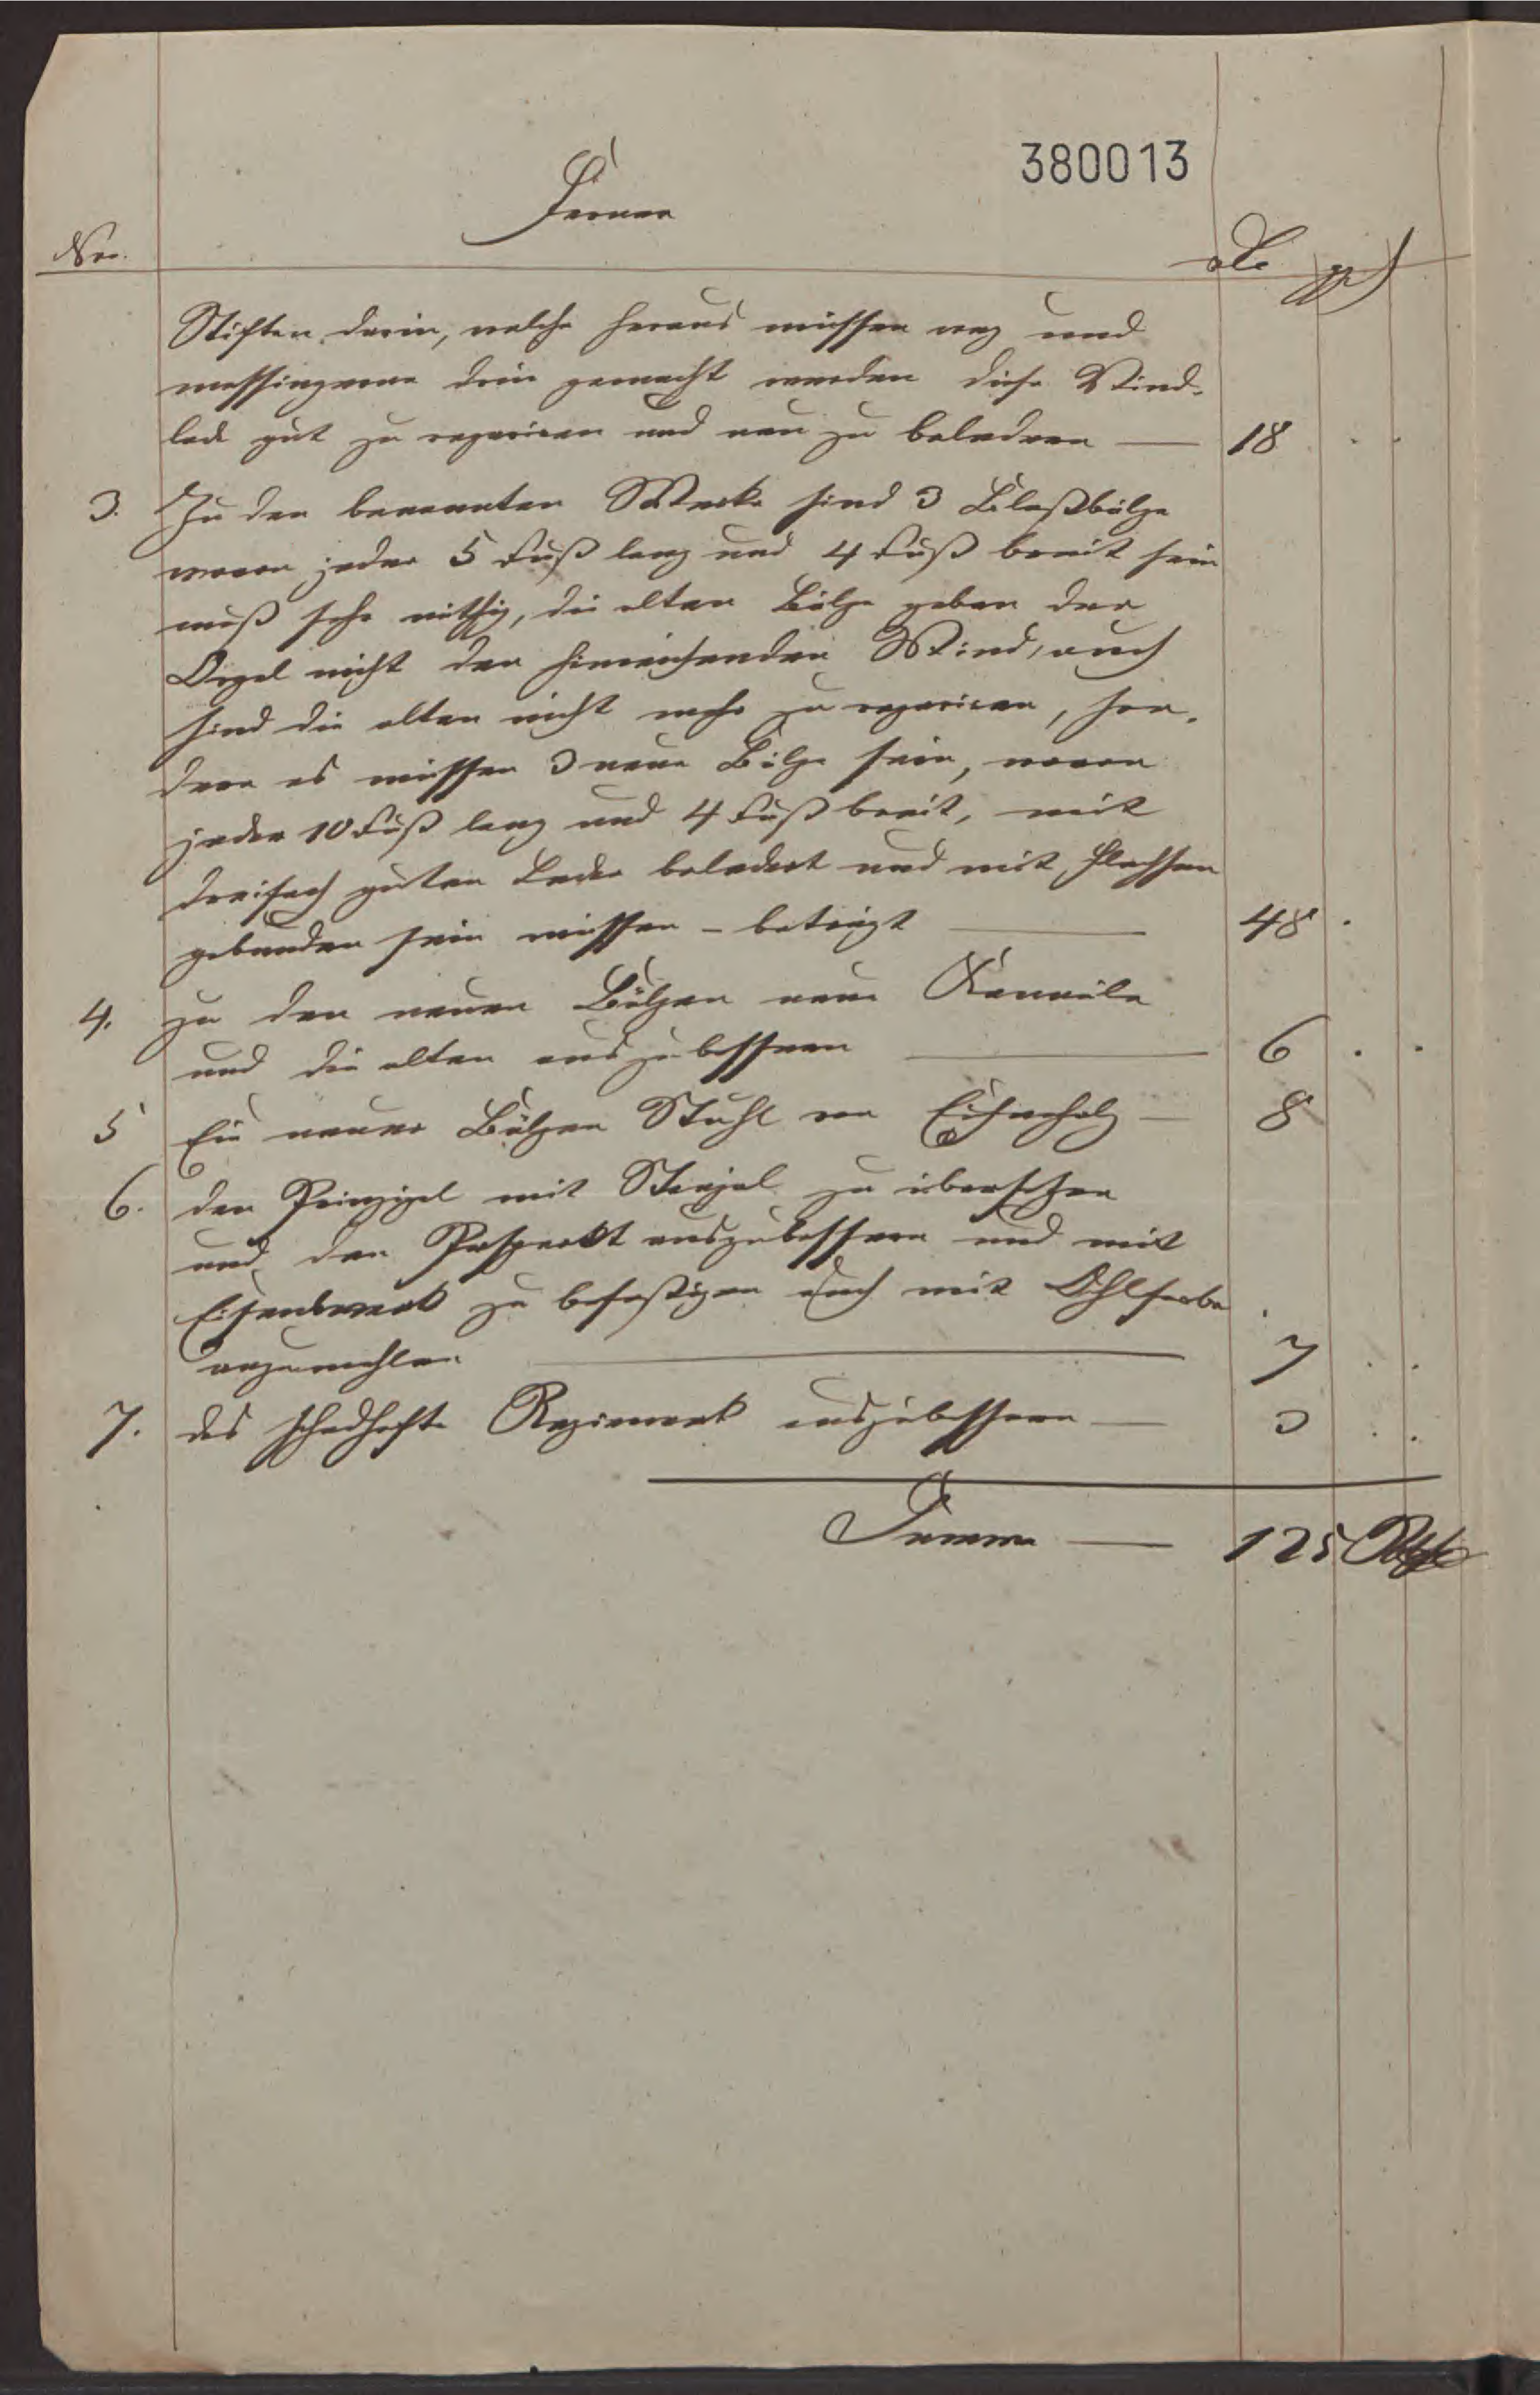 380013
Ferner
Nro.
Stiften darin, welche heraus müssen weg und
messingerne drin gemacht werden diese Wind-
lade gut zu repariren und neu zu beledern — 18
3. Zu den benannten Werke sind 3 Blaßbälge
wovon jeder 5 Fuß lang und 4 Fuß breit sein
muß sehr nöthig, die alten Bälge geben der
Orgel nicht den hinreichenden Wind, auch
sind die alten nicht mehr zu repariren, son-
dern es müssen 3 neue Bälge sein, wovon
jeder 10 Fuß lang und 4 Fuß breit, mit
dreifach guten Leder beledert und mit Flechsen
gebunden sein müssen – beträgt — 48
4. zu den neuen Bälgen neue Kanäle
und die alten auszubessern — 6
5 Ein neuer Bälgen Stuhl von Eichenholz — 8
6. den Prinzipal mit zu übersetzen
und den Prospeckt auszubessern und mit
Eisenwerk zu befestigen auch mit Öhlfarbe
anzumahlen — 7
7. das schadhafte Regierwerk auszubessern — 3
Summa — 125 Rthl